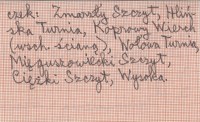 czek: Zmarzły Szczyt, Hliń-
ska Turnia, Koprowy Wierch
(wsch. ścianą), Wołowa Turnia,
Mięguszowiecki Szczyt,
Ciężki Szczyt, Wysoka.